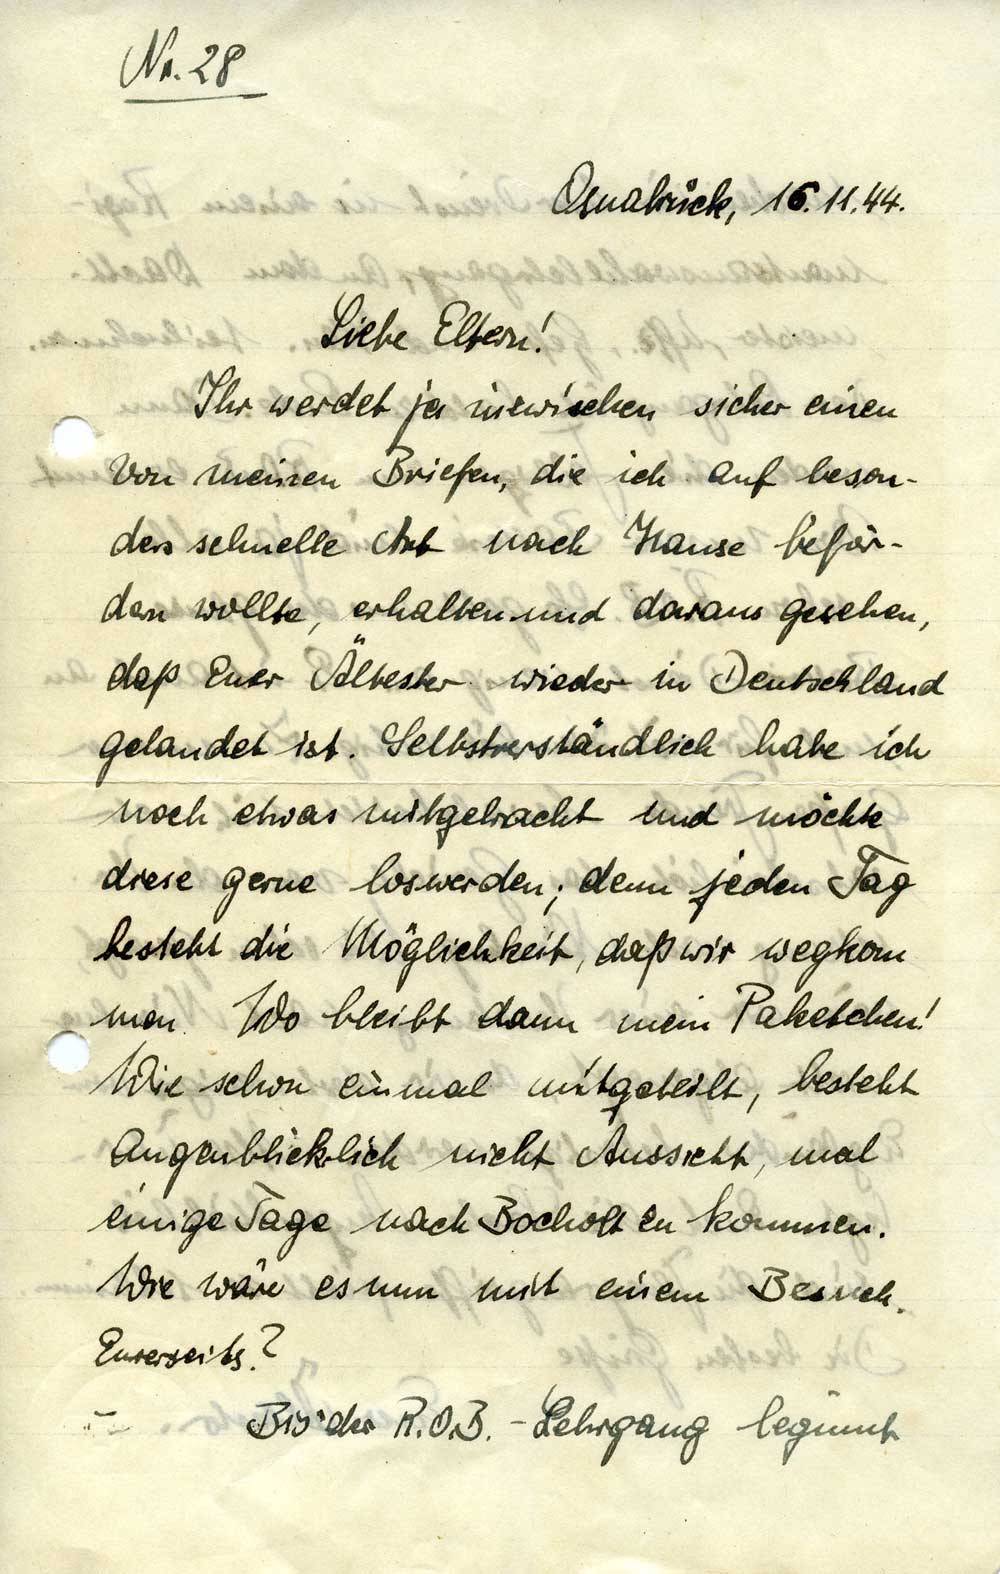 Nr. 28
Osnabrück, 16.11.44.
Liebe Eltern!
Ihr werdet ja inzwischen sicher einen
von meinen Briefen, die ich auf beson-
ders schnelle Art nach Hause beför-
dern wollte, erhalten und daraus gesehen,
daß Euer Ältester wieder in Deutschland
gelandet ist. Selbstverständlich habe ich
noch etwas mitgebracht und möchte
diese gerne loswerden; denn jeden Tag
besteht die Möglichkeit, daß wir wegkom
men. Wo bleibt dann mein Paketchen!
Wie schon einmal mitgeteilt, besteht
augenblicklich nicht Aussicht, mal
einige Tage nach Bocholt zu kommen.
Wie wäre es nun mit einem Besuch
Eurerseits?
Bis der R.O.B. - Lehrgang beginnt